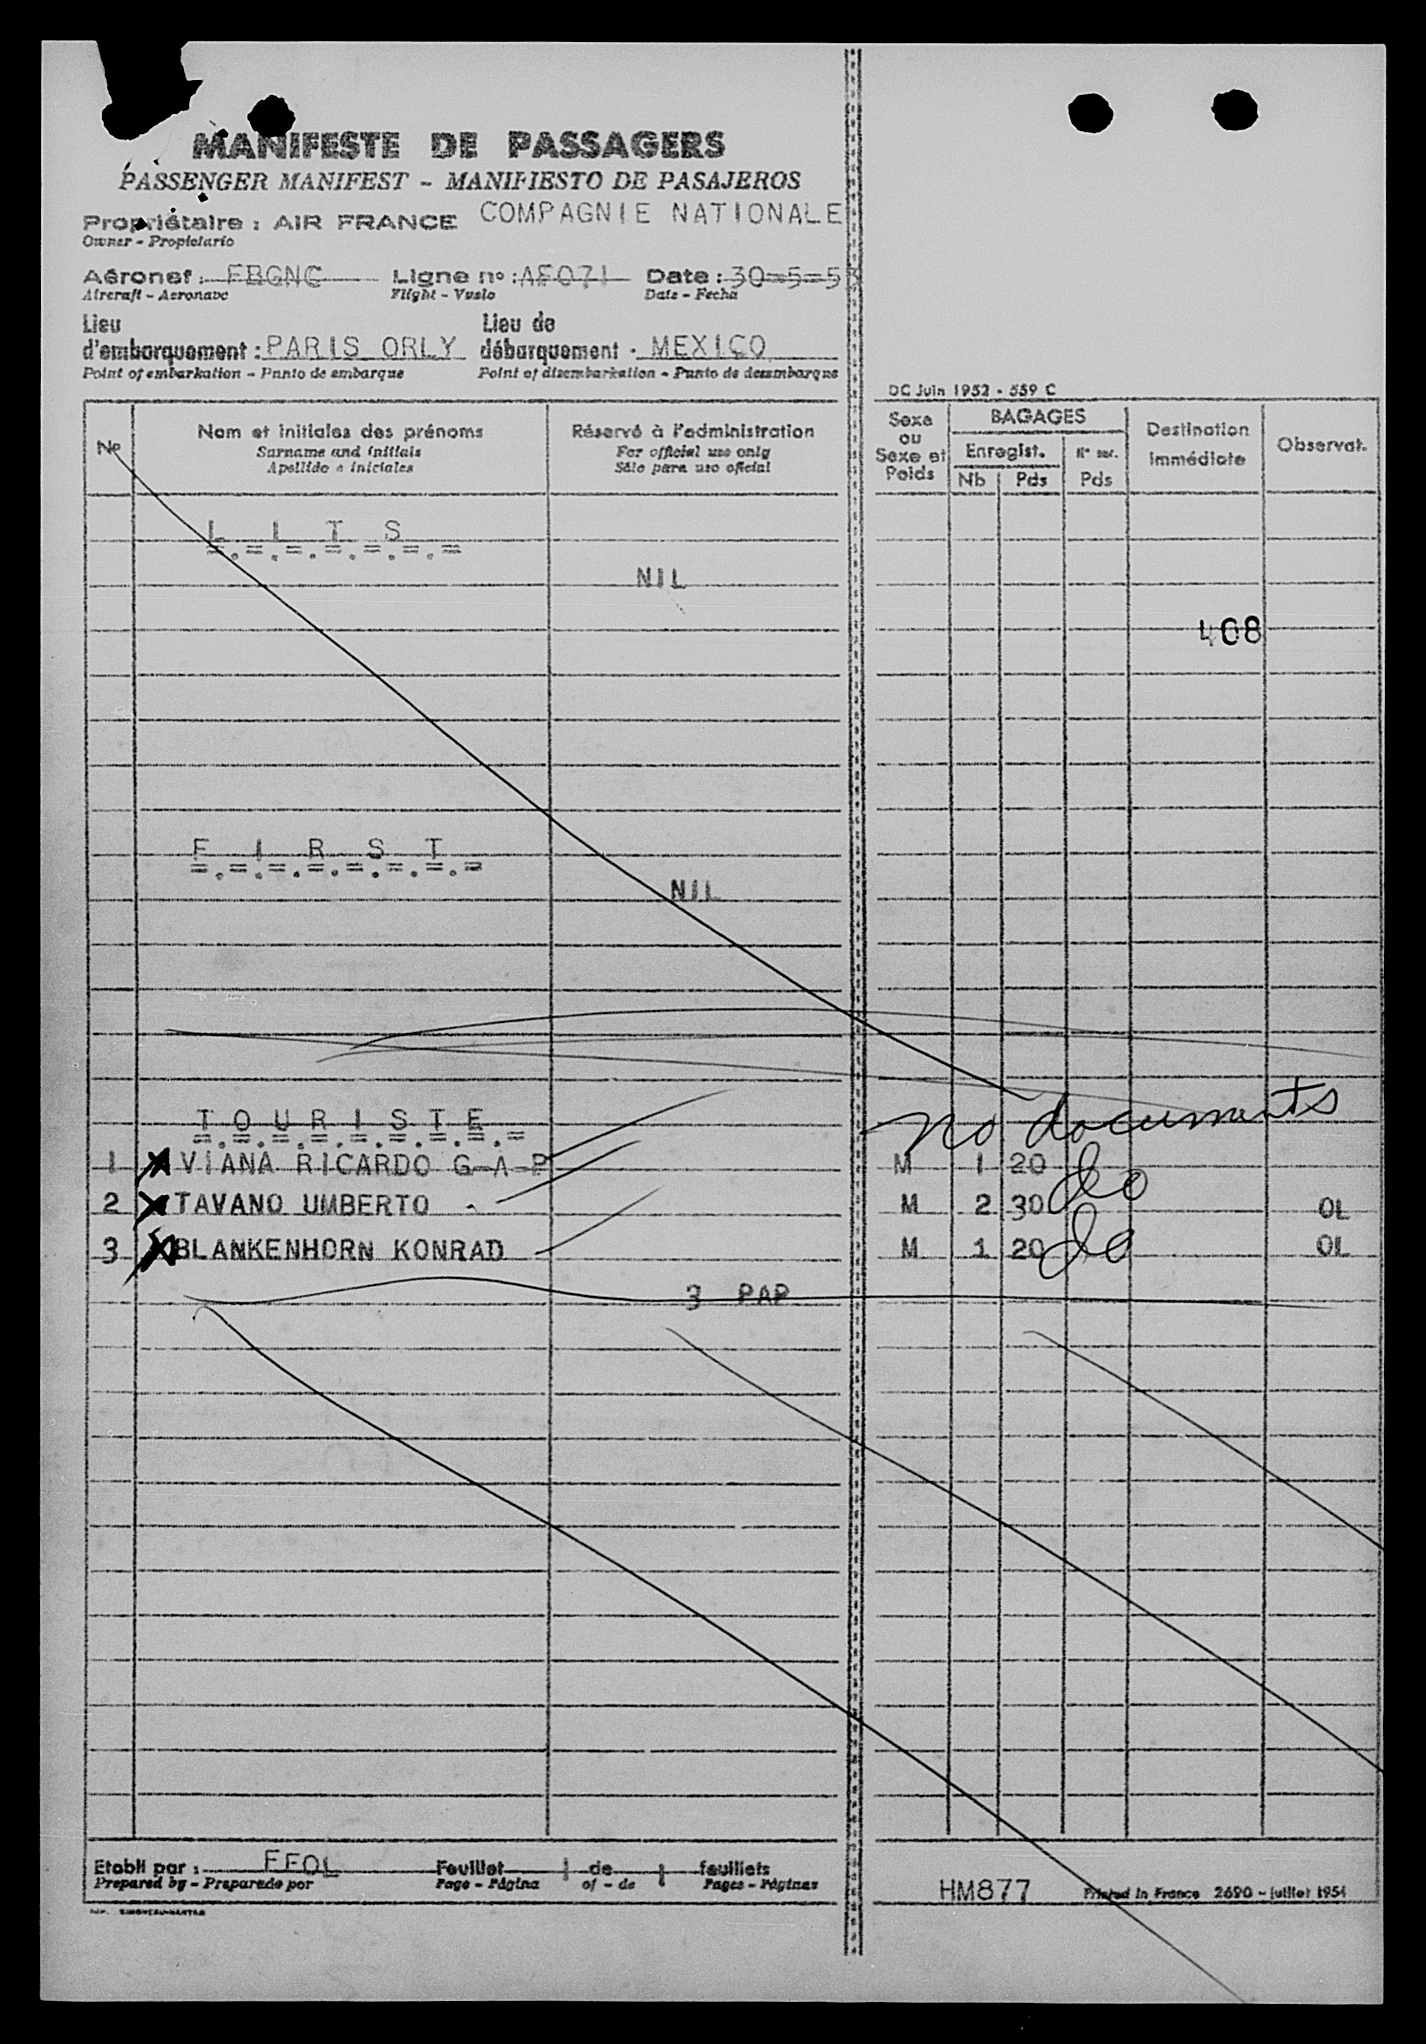 MANIFESTE DE PASSAGERS
PASSENGER MANIFEST - MANIFIESTO DE PASAJEROS
Propriétaire : AIR FRANCE COMPAGNIE NATIONALE
Owner - Propietario
Aéronef : FBGNC Ligne no : AF071 Date : 30-5-53
Aircraft - Aeronave Flight - Vuelo Date - Fecha
Lieu d'embarquement : PARIS ORLY Lieu de débarquement : MEXICO
Point of embarkation - Punto de embarque Point of disembarkation - Punto de desembarque
DC Juin 1952 - 559 C
No Nom et initiales des prénoms Réservé à l'administration Sexe ou Sexe et Poids BAGAGES Destination immédiate Observat.
Surname and initials For official use only Enregist.
Apellido e iniciales Sólo para uso oficial Nb Pds Pds
L I T S
=.=.=.=.=.=.=
NIL
408
F I R S T
=.=.=.=.=.=.=.=
NIL
no documents
T O U R I S T E
=.=.=.=.=.=.=.=.=
1 VIANA RICARDO G-A-P M 1 20 do
2 TAVANO UMBERTO - M 2 30 OL
3 BLANKENHORN KONRAD M 1 20 do OL
3 PAP
Etabli par : FFOL Feuillet 1 de 1 feuillets
Prepared by - Preparado por Page - Página of - de Pages - Páginas
HM877 Printed in France 2690 - juillet 1951